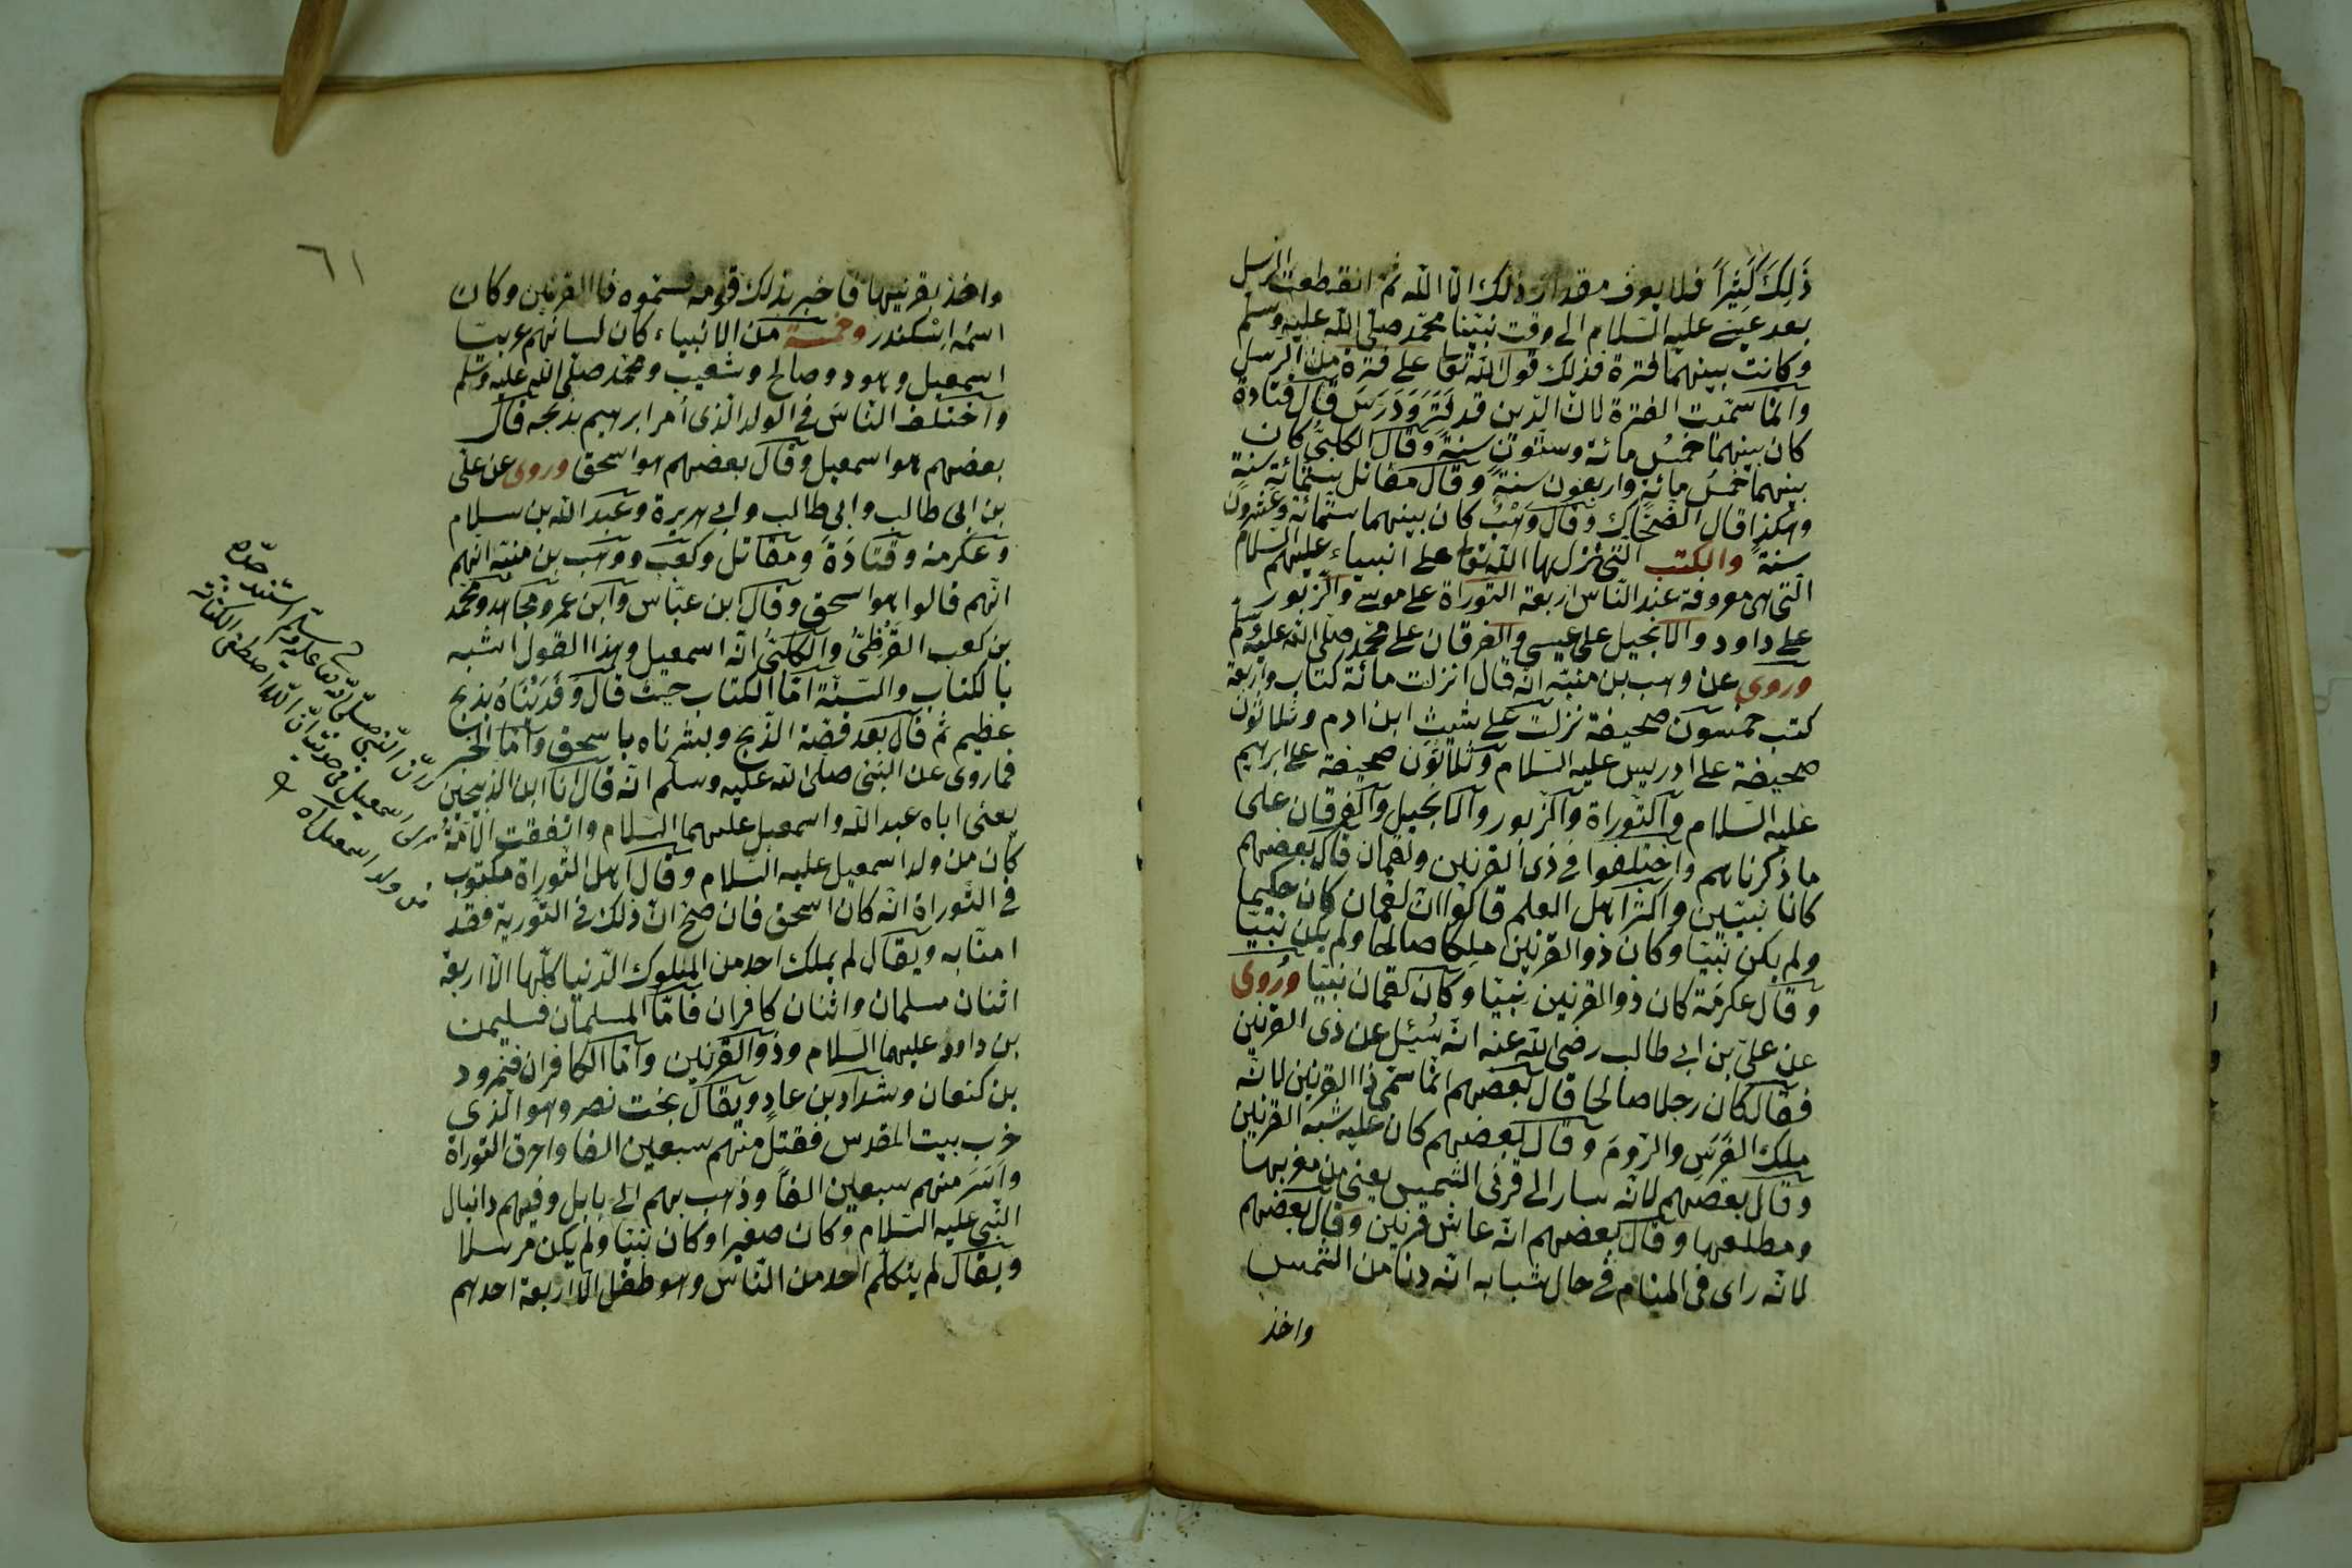 ذَلِكَ كَثِيراً فلا يعرف مقدار ذلك الا الله ثم انقطعت الرسل
بعد عيسى عليه السلام الى وقت نبينا محمد صلى الله عليه وسلم
وكانت بينهما فترة فذلك قول الله تعا على فترة من الرسل
وانما سميت الفترة لان الدين قد فَتَرَ وَدَرَسَ قال قتادة
كان بينهما خمسُ مائة وستون سنة وقال الكلبى كان
بينهما خمسُ مائة واربعون سنة وقال مقاتل ستمائة سنة
وهكذا قال الضحّاك وقال وَهْبُ كان بينهما ستمائة وعشرون
سنة والكتب التى نزل بها الله تعا على انبياء عليهم السلام
التى هى معروفة عند الناس اربعة التوراة على موسى والزبور
على داود والانجيل على عيسى والفرقان على محمد صلى الله عليه وسلم
وروى عن وهب بن منبّه انه قال انزلت مائة كتاب واربعة
كتب خمسون صحيفة نزلت على شيث ابن ادم وثلاثون
صحيفة على ادريس عليه السلام وثلاثون صحيفة على ابرهيم
عليه السلام والتوراة والزبور والانجيل والفرقان على
ما ذكرناهم واختلفوا فى ذى القرنين ولقمان قال بعضهم
كانا نبيين واكثر اهل العلم قالوا ان لقمان كان حكيما
ولم يكن نبيا وكان ذو القرنين ملكا صالحا ولم يكن نبيّا
وقال عكرمة كان ذو القرنين نبيّا وكان لقمان نبيّا ورُوى
عن علىّ بن ابى طالب رضى الله عنه انه سُئِل عن ذى القرنين
فقال كان رجلا صالحا قال بعضهم انما سمّى ذا القرنين لانه
ملك الفَرَس والروم وقال بعضهم كان عليه شبه القرنين
وقال بعضهم لانه سار الى قرنى الشمس يعنى من مغربها
ومطلعها وقال بعضهم انه عاش قرنين وقال بعضهم
لانه راى فى المنام فى حال شبابه انه دنا من الشمس
واخذ
٦١
واخذ بقرنيها فاخبر بذلك قومه فسمّوه ذا القرنين وكان
اسمه اسكندر وخمسة من الانبياء كان لسانهم عربيّا
اسمعيل وهود وصالح وشعيب ومحمد صلى الله عليه وسلم
واختلف الناس فى الولد الذى امر ابرهيم بذبحه قال
بعضهم هو اسمعيل وقال بعضهم هو اسحق وروى عن على
بن ابى طالب وابى طالب وابى هريرة وعبد الله بن سلام
وعكرمة وقتادَةَ ومقاتل وكعب ووهب بن منبه انهم
انهم قالوا هو اسحق وقال ابن عباس وابن عمر ومجاهد ومحمد
بن كعب القُرَظِىُّ والكلبىُّ انه اسمعيل وهذا القول اشبه
بالكتاب والسنة امّا الكتاب حيث قال وَفَدَيْنَاهُ بذبح
عظيم ثم قال بعد قصة الذبح وبشرناه باسحق وامّا الخبر
فما روى عن النبى صلى الله عليه وسلم انه قال انا ابن الذبيحين
يعنى اباه عبد الله واسمعيل عليهما السلام واتفقت الامّةُ
كان من ولد اسمعيل عليه السلام وقال اهل التوراة مكتوب
فى التوراة انه كان اسحق فان صحّ انّ ذلك فى التورية فقد
امنّا به ويقال لم يملك احد من الملوك الدنيا كلها الا اربعة
اثنان مسلمان واثنان كافران فامّا المسلمان فسليمن
بن داود عليهما السلام وذو القرنين وامّا الكافران فنمرود
بن كنعان وشدّاد بن عاد ويقال بخت نصر وهو الذى
خرب بيت المقدس فقتل منهم سبعين الفا واحرق التوراة
وأسَرَ منهم سبعين الفاً وذهب بهم الى بابل وفيهم دانيال
النبى عليه السلام وكان صغيرا وكان نبيّا ولم يكن مرسلا
ويقال لم يتكلم احد من الناس وهو طفل الا اربعة احدهم
انّ النبى صلى الله تعا عليه وسلم اسند جده
اسمعيل فى حديث انّ الله اصطفى الكنانة
من ولد اسمعيل